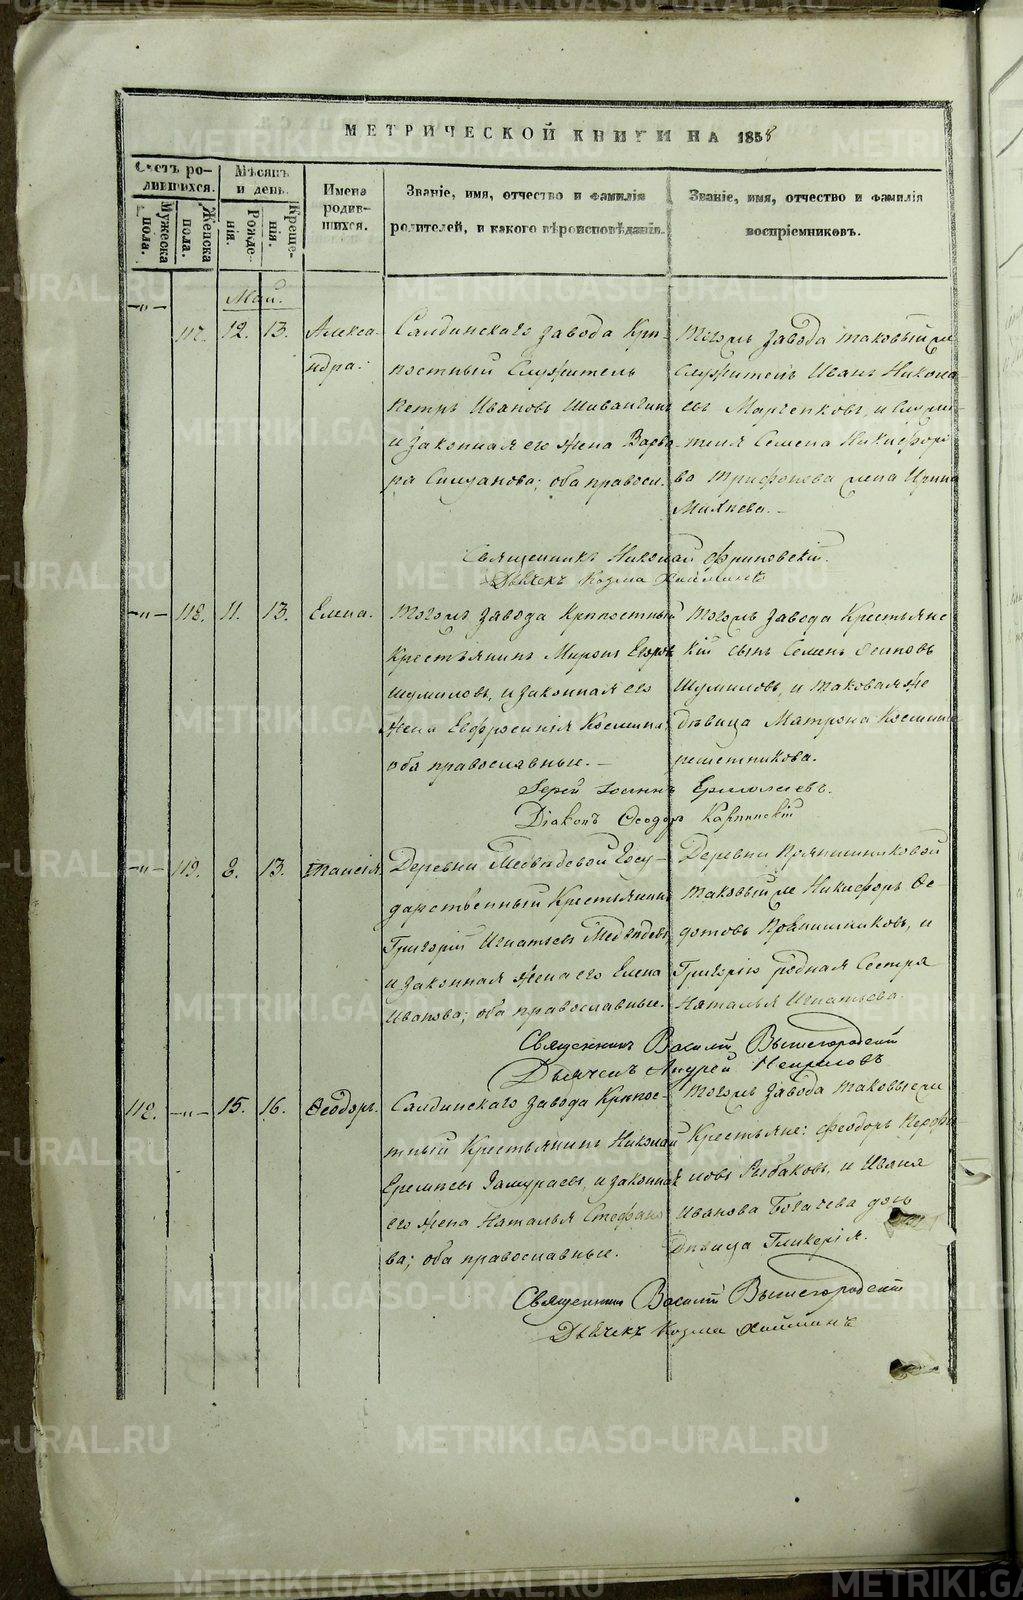 МЕТРИЧЕСКОЙ КНИГИ НА 1858
Счетъ родившихся.
Мужеска пола.
Женска пола.
Мѣсяцъ и день.
Рожденія.
Крещенія.
Имена родившихся.
Званіе, имя, отчество и фамилія
родителей, и какого вѣроисповѣданія.
Званіе, имя, отчество и фамилія
воспріемниковъ.
Май.
117. 12. 13. Алекса-
ндра.
Салдинскаго завода Крѣ-
постный Служитель
Петръ Ивановъ
и законная его жена Варва-
ра оба правосл.
Тогожъ завода таковыйже
Служитель Иванъ
евъ и Служи-
теля Семена Никифоро-
ва Трифонова жена Ирина
Священникъ Николай Флоровскій.
Дьячекъ Козма
118. 11. 13. Елена.
Тогожъ завода Крѣпостный
Крестьянинъ Миронъ Егоровъ
Шумиловъ, и законная его
жена Евфросинія Космина;
оба православные.
Тогожъ завода Крестьянс-
кій сынъ Семенъ Осиповъ
Шумиловъ, и таковаяже
дѣвица Матрона Космина
Решетникова.
Іерей Іоаннъ Ермолаевъ.
Діаконъ Ѳеодоръ Карпинскій
119. 8. 13. Таисія.
Деревни Медвѣдевой Госу-
дарственный Крестьянинъ
Григорій Игнатьевъ Медвѣдевъ
и законная жена его Елена
Иванова; оба православные.
Деревни Прянишниковой
таковыйже Никифоръ Ѳе-
дотовъ Прянишниковъ, и
Григорію родная Сестра
Наталья Игнатьева.
Священникъ Василій Вышегородскій
Дьячекъ Андрей
112. 15. 16. Ѳеодоръ.
Салдинскаго завода Крѣпос-
тный Крестьянинъ Николай
Еремѣевъ Замураевъ, и законная
его жена Наталья Стефано-
ва; оба православные.
Тогожъ завода таковыеже
Крестьяне: Феодоръ
новъ Рыбаковъ, и Ивана
Иванова Богачева дочь
дѣвица Гликерія.
Священникъ Василій Вышегородскій
Дьячекъ Козма